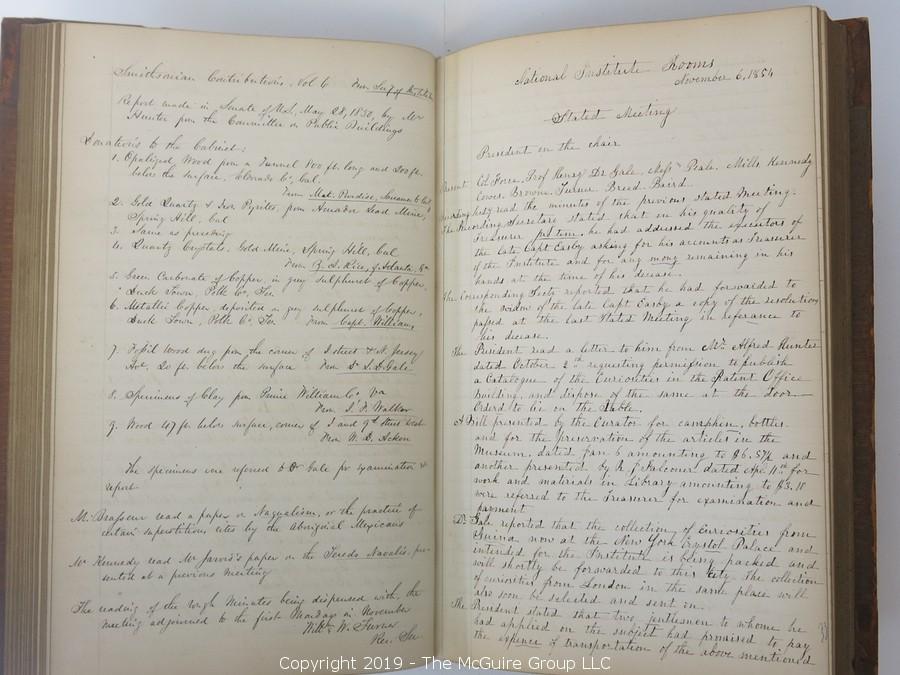 Smithsonian Contributions, Vol 6 from Inst
Report made in Senate of U.S., May 28, 1850, by Mr
Hunter from the Committee on Public Buildings
Donations to the Cabinet:
1. Opalized Wood from a Tunnel 800 ft. long and 200 ft.
below the surface, Eldorado Co, Cal.
From Mat. Purdise, Cal
2. Gold Quartz & Iron Pyrites, from Amador Lead Mine,
Spring Hill, Cal
3. Same as preceding
4. Quartz Crystals, Gold Mine, Spring Hill, Cal
From Z. S. Rice, of Atlanta, Ga
5. Green Carbonate of Copper, in grey sulphuret of Copper,
Duck Town, Polk Co, Ten
6. Metallic Copper, deposited in grey sulphuret of Copper,
Duck Town, Polk Co, Ten From Capt. Williams
7. Fossil Wood dug from the corner of I street & N. Jersey
Ave, 20 ft. below the surface From Dr L. D. Gale
8. Specimens of Clay from Prince William Co, Va
From, J. F. Walker
9. Wood 47 ft. below surface, corner of I and 9th street West
From W. D.
The specimens were referred to Dr Gale for examination &
report
M. Brasseur read a paper on Nagualism, or the practice of
certain superstitious rites by the Aboriginal Mexicans
Mr Kennedy read Mr Jarvis's paper on the Teredo Navalis, pre-
sented at a previous meeting
The reading of the rough Minutes being dispensed with the
meeting adjourned to the first Monday in November
Wm W. Turner
Rec. Sec
National Institute Rooms
November 6, 1854
Stated Meeting
President in the chair
Present Col Force, Prof Henry, Dr Gale, Messrs Peale, Mills, Kennedy
Cower, Browne, Turner, Breed, Baird.
Recording Secty read the minutes of the previous stated Meeting.
The Recording Secretary stated that in his quality of
Treasurer pro tem. he had addressed the executors of
the late Capt Easby asking for his accounts as Treasurer
of the Institute and for any mony remaining in his
hands at the time of his decease.
The Corresponding Secty reported that he had forwarded to
the widow of the late Capt Easby a copy of the resolutions
passed at the last Stated Meeting in reference to
his decease.
The President read a letter to him from Mr Alfred Hunter
dated October 2d requesting permission to publish
a Catalogue of the Curiosities in the Patent Office
Building, and dispose of the same at the door—
Orderd to lie on the Table.
A Bill presented by the Curator for camphin, bottles
and for the preservation of the articles in the
Museum, dated Jan 6 amounting to $6.57½ and
another presented by R. J. Falconer dated Apr 11th for
work and materials in Library amounting to $3.18
were referred to the Treasurer for examination and
payment
Dr Gale reported that the collection of Curiosities from
Guina now at the New York Crystol Palace and
intended for the Institute is being packed and
will shortly be forwarded to this City. The collection
of curiosities from London in the same place will
also soon be selected and sent on.
The President stated that two gentlemen to whome he
had applied on the subject had promised to pay
the expence of transportation of the above mentioned
Copyright 2019 - The McGuire Group LLC